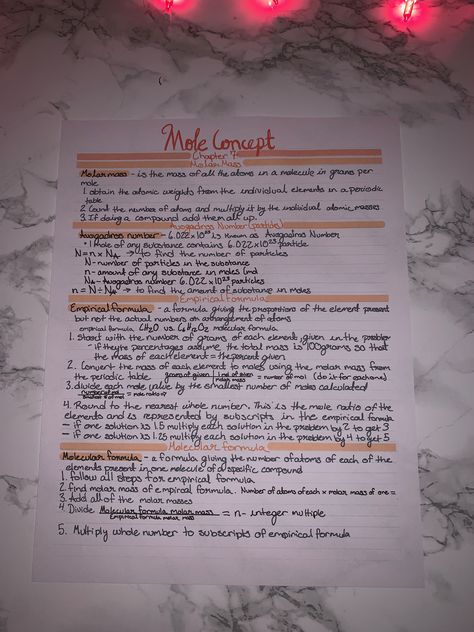 Mole Concept
Chapter 7
Molar Mass
Molar mass - is the mass of all the atoms in a molecule in grams per
mole
1. obtain the atomic weights from the individual elements in a periodic
table
2. Count the number of atoms and multiply it by the individual atomic masses
3. If doing a compound add them all up.
Avogadros Number (particles)
Avogadros number - 6.022 x 10²³ is known as Avogadros Number
• 1 mole of any substance contains 6.022 x 10²³ particle
N = n x NA → to find the number of particles
N - number of particles in the substance
n - amount of any substance in moles (m)
NA - Avogadros number 6.022 x 10²³
n = N ÷ NA → to find the amount of substance in moles
Empirical formula
Empirical formula - a formula giving the proportions of the element present
but not the actual numbers or arrangement of atoms
empirical formula CH₂O vs. C₆H₁₂O₆ molecular formula
1. Start with the number of grams of each element, given in the problem
- if they're percentages assume the total mass is 100grams so that
the mass of each element = the percent given
2. Convert the mass of each element to moles using the molar mass from
the periodic table. grams of given | 1 mol of given / molar mass = number of mol (do so for each one)
3. divide each mole value by the smallest number of moles calculated
= mole ratio
4. Round to the nearest whole number. This is the mole ratio of the
elements and is represented by subscripts in the empirical formula
- if one solution is 1.5 multiply each solution in the problem by 2 to get 3
- if one solution is 1.25 multiply each solution in the problem by 4 to get 5
Molecular formula
Molecular formula - a formula giving the number of atoms of each of the
elements present in one molecule of a specific compound
1. follow all steps for empirical formula
2. find molar mass of empirical formula. Number of atoms of each x molar mass of one =
3. Add all of the molar masses
4. Divide Molecular formula molar mass / Empirical formula molar mass = n - integer multiple
5. Multiply whole number to subscripts of empirical formula